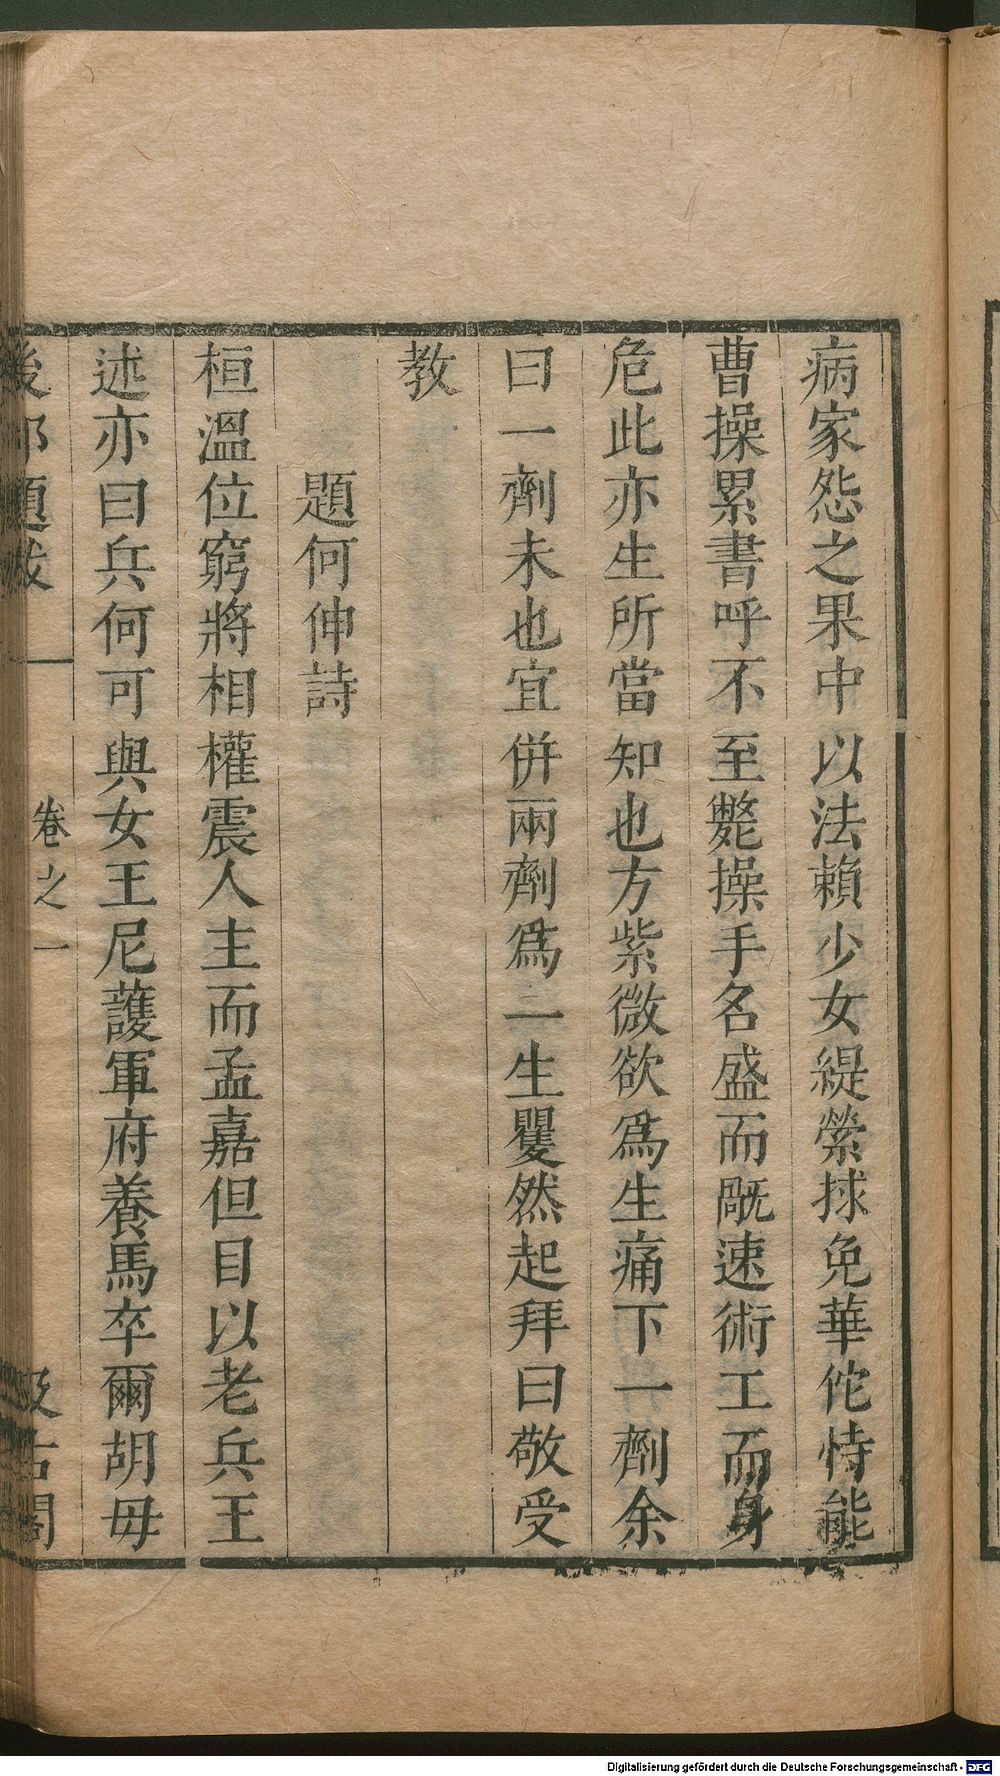 病家怨之果中以法賴少女緹縈捄免華佗恃能
曹操累書呼不至斃操手名盛而旤速術工而身
危此亦生所當知也方紫微欲爲生痛下一劑余
曰一劑未也宜併兩劑爲一生矍然起拜曰敬受
教
題何仲詩
桓溫位窮將相權震人主而孟嘉但目以老兵王
述亦曰兵何可與女王尼護軍府養馬卒爾胡毋
後邨題跋
卷之一
汲古閣
Digitalisierung gefördert durch die Deutsche Forschungsgemeinschaft - DFG